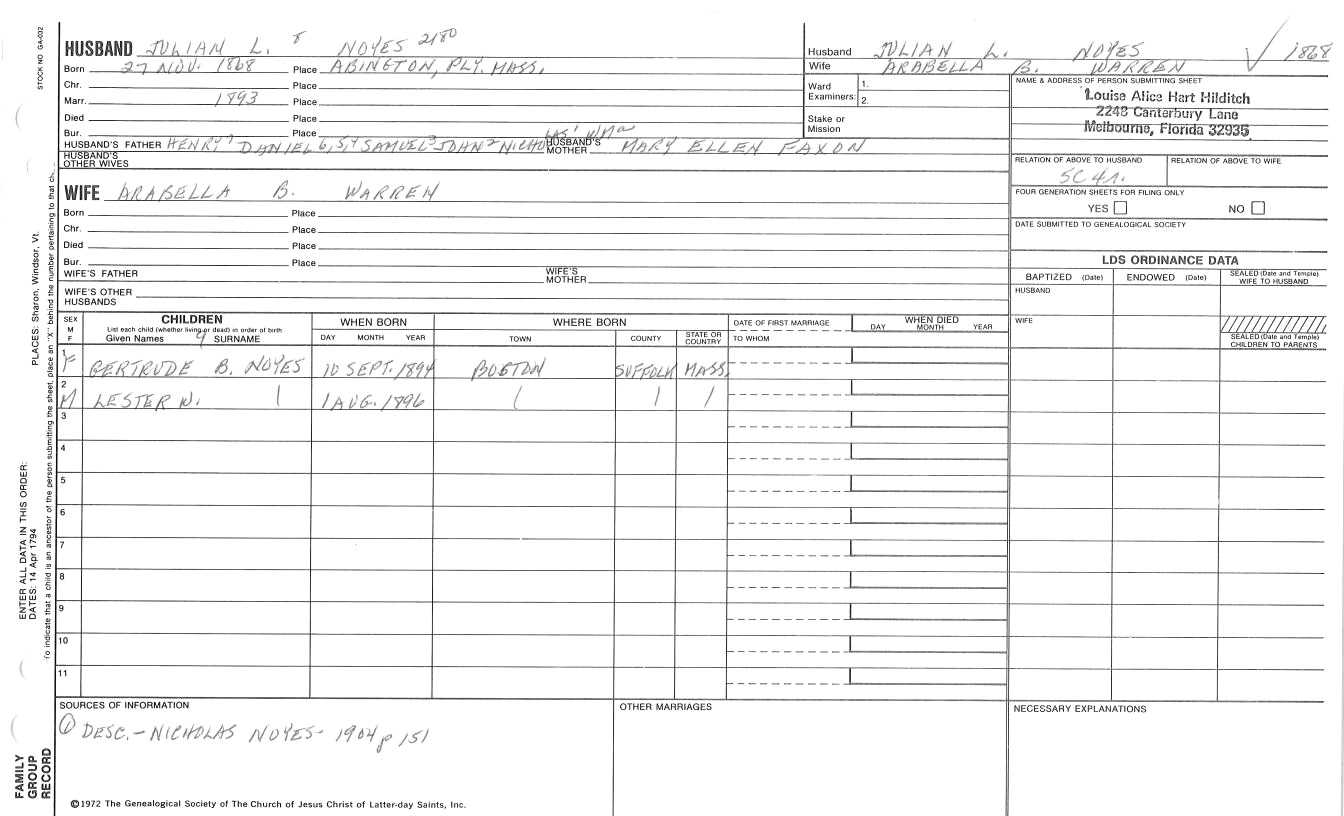 STOCK NO GA-032
HUSBAND JULIAN L. 8 NOYES 2180
Born 27 NOV. 1868 Place ABINGTON, PLY. MASS.
Chr. Place
Marr. 1893 Place
Died Place
Bur. Place
HUSBAND'S FATHER HENRY7 DANIEL 6,5,4 SAMUEL3 JOHN2 NICHOLAS1 HUSBAND'S MOTHER MARY ELLEN FAXON
HUSBAND'S OTHER WIVES
WIFE ARABELLA B. WARREN
Born Place
Chr. Place
Died Place
Bur. Place
WIFE'S FATHER WIFE'S MOTHER
WIFE'S OTHER HUSBANDS
Husband JULIAN L. NOYES 1868
Wife ARABELLA B. WARREN
Ward Examiners: 1.
2.
Stake or Mission
NAME & ADDRESS OF PERSON SUBMITTING SHEET
Louise Alice Hart Hilditch
2248 Canterbury Lane
Melbourne, Florida 32935
RELATION OF ABOVE TO HUSBAND RELATION OF ABOVE TO WIFE
5C4R.
FOUR GENERATION SHEETS FOR FILING ONLY
YES NO
DATE SUBMITTED TO GENEALOGICAL SOCIETY
LDS ORDINANCE DATA
BAPTIZED (Date) ENDOWED (Date) SEALED (Date and Temple) WIFE TO HUSBAND
HUSBAND
WIFE
SEALED (Date and Temple) CHILDREN TO PARENTS
SEX M F
CHILDREN
List each child (whether living or dead) in order of birth
Given Names SURNAME
WHEN BORN
DAY MONTH YEAR
WHERE BORN
TOWN COUNTY STATE OR COUNTRY
DATE OF FIRST MARRIAGE
TO WHOM
WHEN DIED
DAY MONTH YEAR
1 F GERTRUDE B. NOYES 10 SEPT. 1894 BOSTON SUFFOLK MASS.
2 M LESTER W. 1 AUG. 1896
3
4
5
6
7
8
9
10
11
SOURCES OF INFORMATION
① DESC.-NICHOLAS NOYES- 1904 p 151
OTHER MARRIAGES
NECESSARY EXPLANATIONS
©1972 The Genealogical Society of The Church of Jesus Christ of Latter-day Saints, Inc.
PLACES: Sharon, Windsor, Vt.
To indicate that a child is an ancestor of the person submitting the sheet, place an "X" behind the number pertaining to that
ENTER ALL DATA IN THIS ORDER:
DATES: 14 Apr 1794
FAMILY
GROUP
RECORD